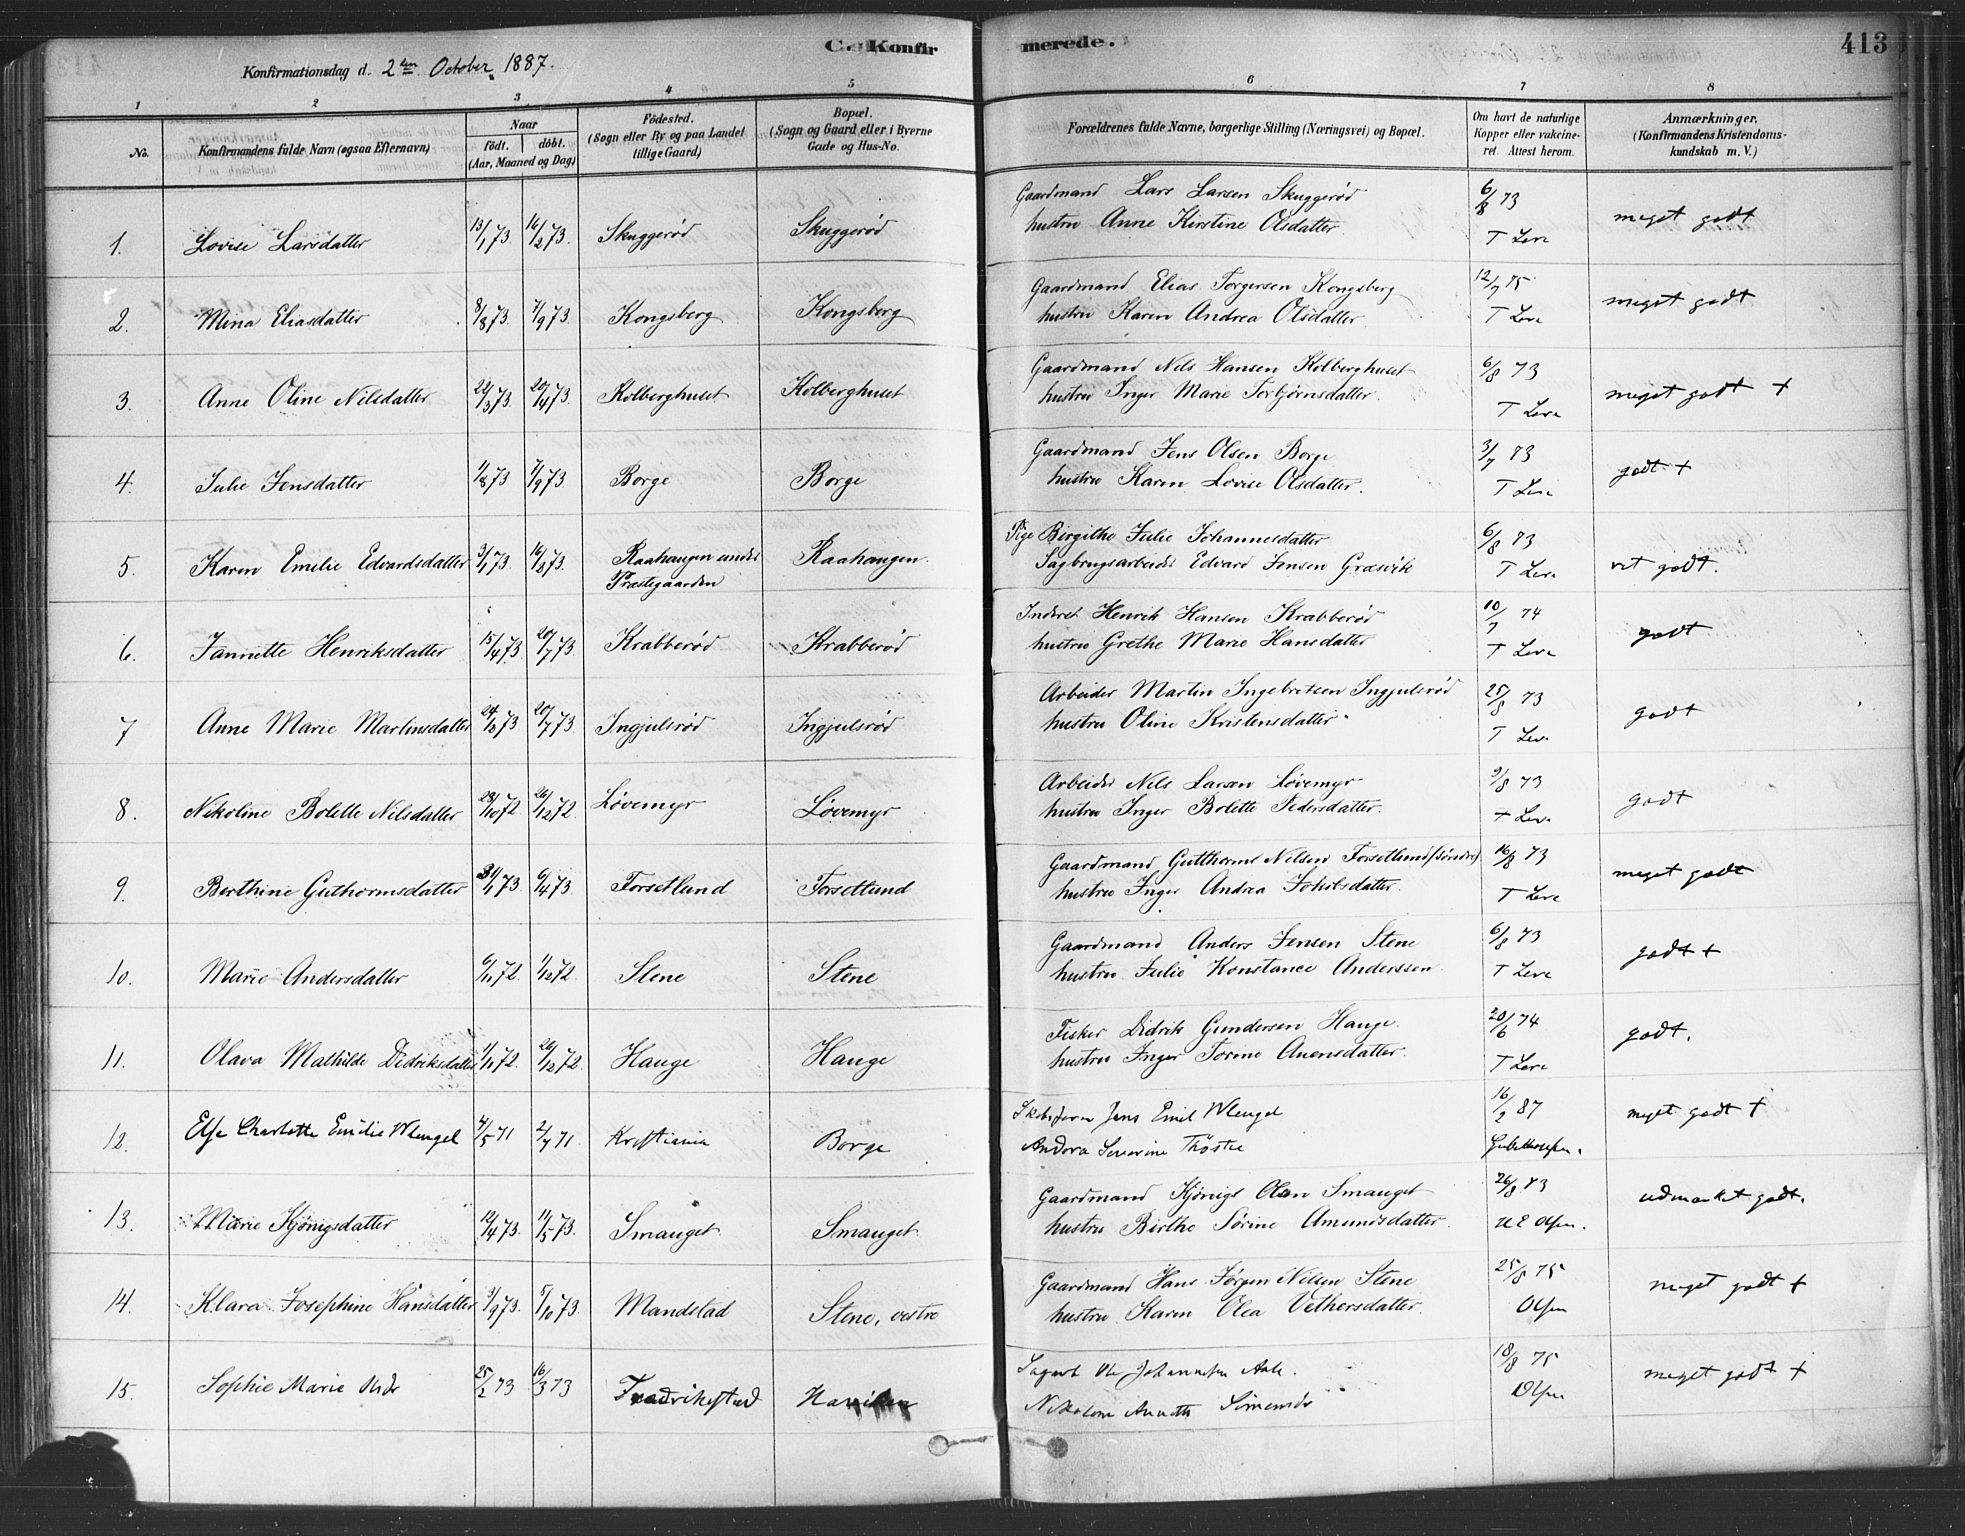 C. Konfirmerede.
413
Konfirmationsdag d. 2den October 1887.
1 2 3 4 5 6 7 8
No.
Konfirmandens fulde Navn (ogsaa Efternavn)
Naar
födt. döbt.
(Aar, Maaned og Dag)
Födested.
(Sogn eller By og paa Landet
tillige Gaard)
Bopæl.
(Sogn og Gaard eller i Byerne
Gade og Hus-No.
Forældrenes fulde Navne, borgerlige Stilling (Næringsvei) og Bopæl.
Om havt de naturlige
Kopper eller vakcine-
ret. Attest herom.
Anmærkninger.
(Konfirmandens Kristendoms-
kundskab m. V.)
1. Lovise Larsdatter 13/1 73. 16/2 73. Skuggerød Skuggerød
Gaardmand Lars Larsen Skuggerød 6/8 73
hustru Anne Kirstine Olsdatter. T Lere meget godt
2. Mina Eliasdatter 8/8 73. 7/9 73. Kongsberg Kongsberg
Gaardmand Elias Torgersen Kongsberg 12/7 75
hustru Karen Andrea Olsdatter. T Lere meget godt
3. Anne Oline Nilsdatter 3 73. 20/4 73. Kolberghuset Kolberghuset
Gaardmand Nils Hansen Kolberghuset 6/8 73
hustru Inger Marie Torbjørnsdatter. T Lere meget godt +
4. Julie Jensdatter 1/8 73 7/9 73. Borge Borge
Gaardmand Jens Olsen Borge 3/7 73
hustru Karen Lovise Olsdatter. T Lere godt +
5. Karen Emilie Edvardsdatter 3/1 73. 73. Raahaugen under Raahaugen.
Præstegaarden
Pige Birgithe Julie Johannesdatter 6/8 73
Sagbrugsarbeider Edvard Jensen Græsvik T Lere vet godt.
6. Jannette Henriksdatter 15/4 73. 20/7 73. Krabberød Krabberød
Inderst Henrik Hansen Krabberød 10/7 74
hustru Grethe Marie Hansdatter T Lere godt
7 Anne Marie Martinsdatter 73. 20/7 73. Ingjulsrød Ingjulsrød
Arbeider Martin Ingebretsen Ingjulsrød 25/8 73
hustru Oline Kristensdatter. T Lere godt
8. Nikoline Bolette Nilsdatter 28/10 72. 26/12 72. Løvemyr Løvemyr
Arbeider Nils Larsen Løvemyr 9/8 73
hustru Inger Bolette Pedersdatter. T Lere godt
9. Berthine Guthormsdatter 31/1 73. 6/4 73. Forsetlund Forsetlund
Gaardmand Gutthorms Nilsen Forsetlund (søndre) 16/8 73
hustru Inger Andrea Jakobsdatter. T Lere meget godt
10. Marie Andersdatter 6/11 72. 1/12 72. Stene Stene
Gaardmand Anders Jensen Stene 6/8 73
hustru Julie Konstance Anderssen T Lere godt +
11. Olava Mathilde Didriksdatter 1/11 72. 26/12 72. Hauge Hauge
Fisker Didrik Gundersen Hauge. 20/6 74
hustru Inger Torine Auensdatter. T Lere godt.
12. Else Charlotte Emilie Wengel 4/5 71 2/7 71 Kristiania Borge
Jens Emil Wengel 16/2 87
Andora Severine meget godt +
13. Marie Kjønigsdatter 12/4 73. 11/5 73. Smauget Smauget
Gaardmand Kjønigs Olsen Smauget 26/8 73
hustru Birthe Sørine Amundsdatter. Olsen. udmærket godt.
14. Klara Josephine Hansdatter 3/9 73. 5/10 73. Mandstad Stene, vestre
Gaardmand Hans Jørgen Nilsen Stene 25/8 75
hustru Karen Olea Vethersdatter. Olsen meget godt +
15. Sophie Marie Olsdr 25/2 73 16/3 73 Fredrikstad
Ole Johannesen 18/8 75
Nikoline Annette Simensdr Olsen meget godt +